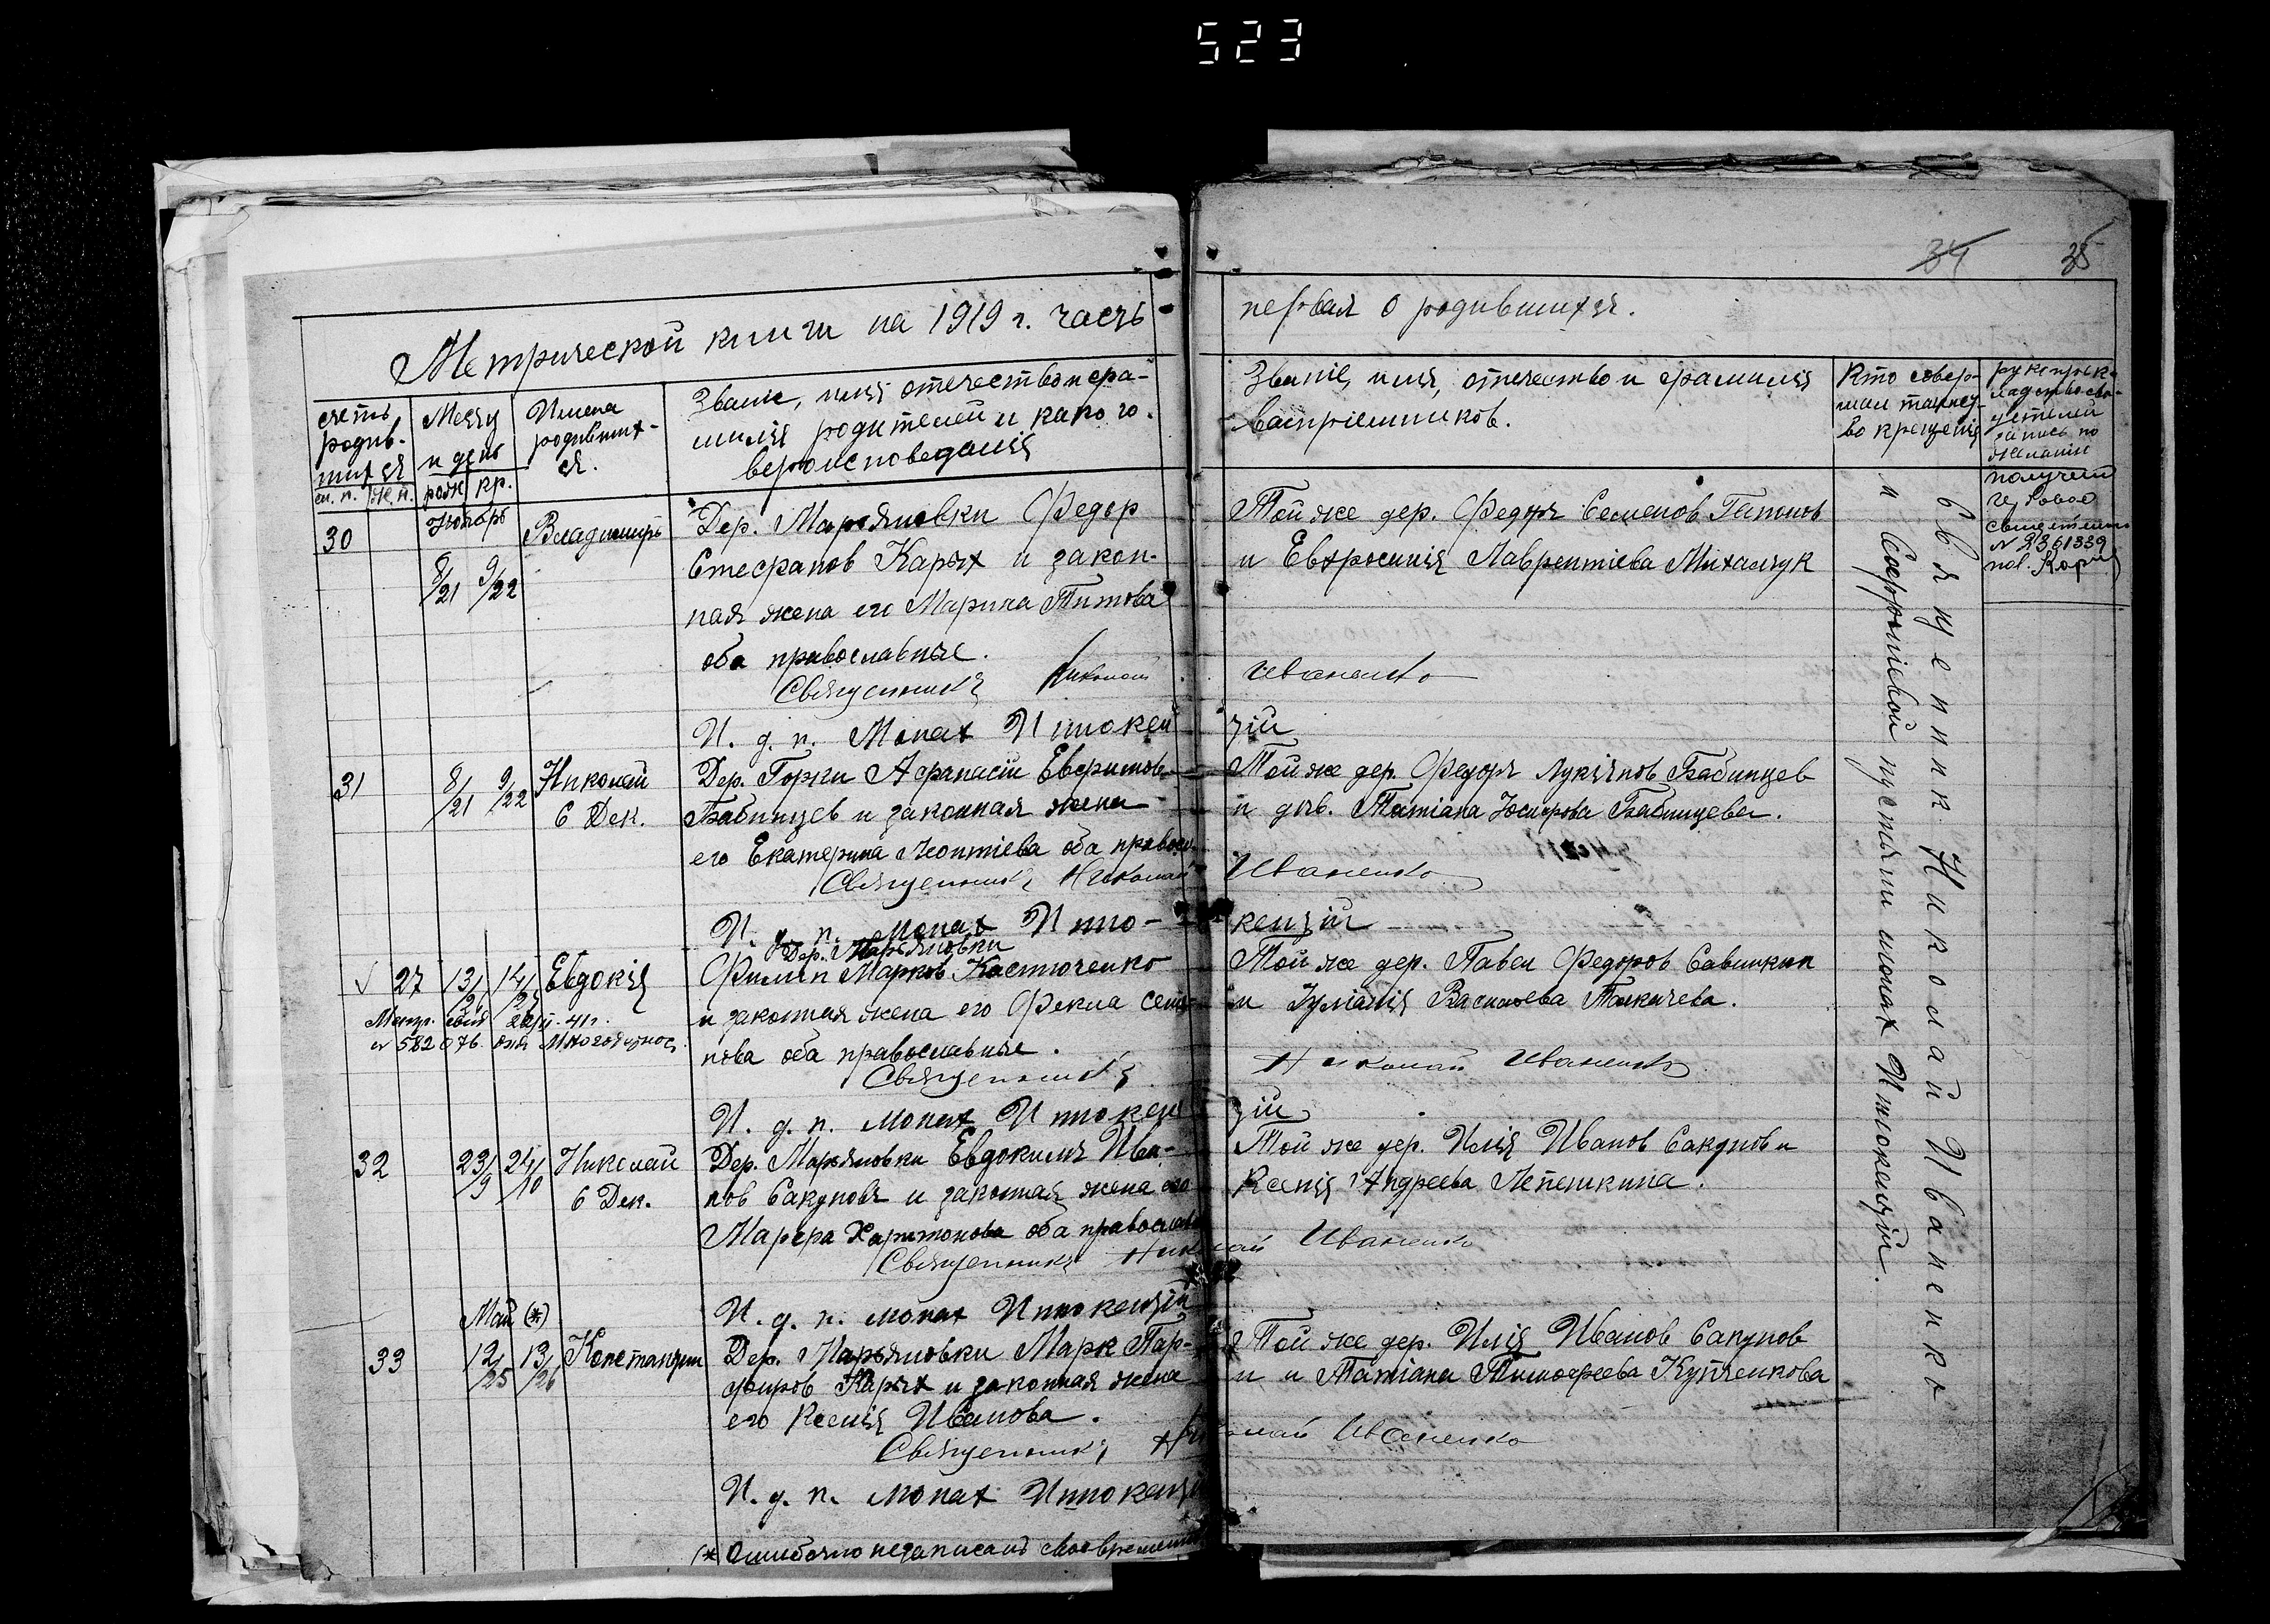 523
34 35
Метрической книги на 1919 г. часть
первая о родившихся.
счетъ родив-шихся
м. п. ж. п.
Месяц и день
рож. кр.
Имена родивших-ся.
Звание, имя отечество и фа-
милія родителей и какого
вероисповеданія
Званіе, имя, отечество и фамилия
воспріемников.
Кто совер-
шал таинст-
во крещенія
рукоприк-
ладство сви-
детелей
запись по
желанию
30
Ноябрь
8/21 9/22
Владимиръ
Дер. Марьяновки Федор
Стефанов Карых и закон-
ная жена его Марина Титова
оба православные.
Священникъ Николай Иваненко
И. д. п. Монах Иннокентій
Той же дер. Федоръ Семенов Гапонов
и Евфросинія Лаврентіева Михальчук
получен
свидетельство
№ 2361339
31
8/21 9/22
Николай
6 Дек.
Дер. Горки Афанасій Ефимов
Бабинцев и законная жена
его Екатерина Леонтіева оба правосл.
Священникъ Николай Иваненко
И. д. п. Монах Иннокентій
Той же дер. Федоръ Лукьянов Бабинцев
и дев. Татіана Бабинцева.
27
13/26 14/27
Евдокія
№ 582076
Дер. Марьяновки
Филип Марков Костюченко
и законная жена его Фекла Семе-
нова оба православные.
Священникъ Николай Иваненко
И. д. п. монах Иннокентій
Той же дер. Павел Федоров Савинкин
и Іуліанія Васильева Толкачева.
32
23/9 24/10
Николай
6 Дек.
Дер. Марьяновки Евдокимъ Ива-
нов Сакуновъ и законная жена его
Марфа Харитонова оба православн
Священникъ Николай Иваненко
И. д. п. монах Иннокентій
Той же дер. Илія Иванов Сакунов и
Ксенія Андреева Лепешкина.
Май (*)
33
12/25 13/26
Константин
Дер. Марьяновки Марк Пор-
фиров Карых и законная жена
его Ксенія Иванова.
Священникъ Николай Иваненко
И. д. п. монах Иннокентій
Той же дер. Илія Иванов Сакунов
и Татіана Тимофеева Купченкова
Священник Николай Иваненко
и Софрониевой пустыни монах Иннокентій.
(* Ошибочно незаписанъ своевременно